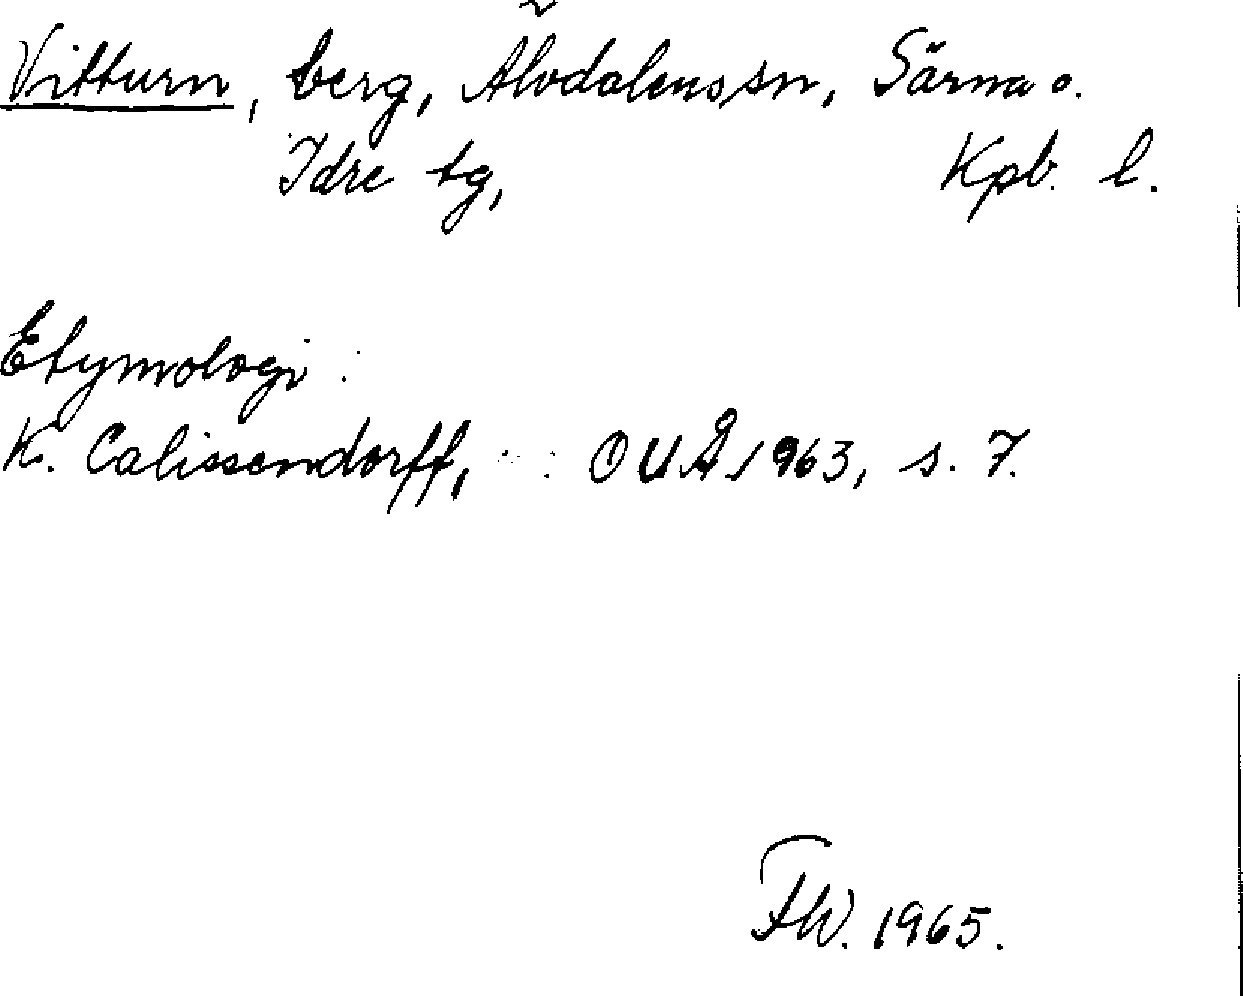 Vitturn, berg, Älvdalens sn, Särna o.
Idre tg, Kpb. l.
Etymologi:
K. Calissendorff, i: OUÅ 1963, s. 7.
FW. 1965.